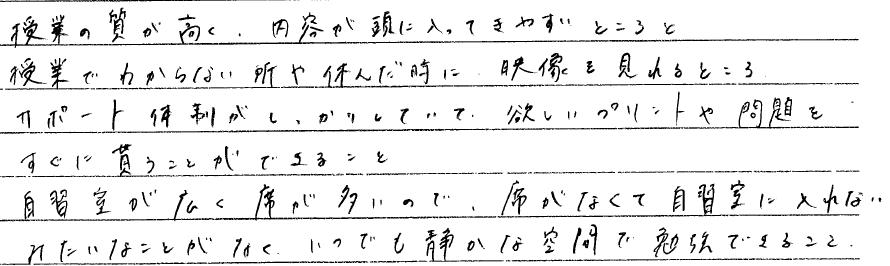 授業の質が高く、内容が頭に入ってきやすいところと
授業でわからない所や休んだ時に、映像を見れるところ
サポート体制がしっかりしていて、欲しいプリントや問題を
すぐに貰うことができること
自習室が広く席が多いので、席がなくて自習室に入れない
みたいなことがなく、いつでも静かな空間で勉強できること。